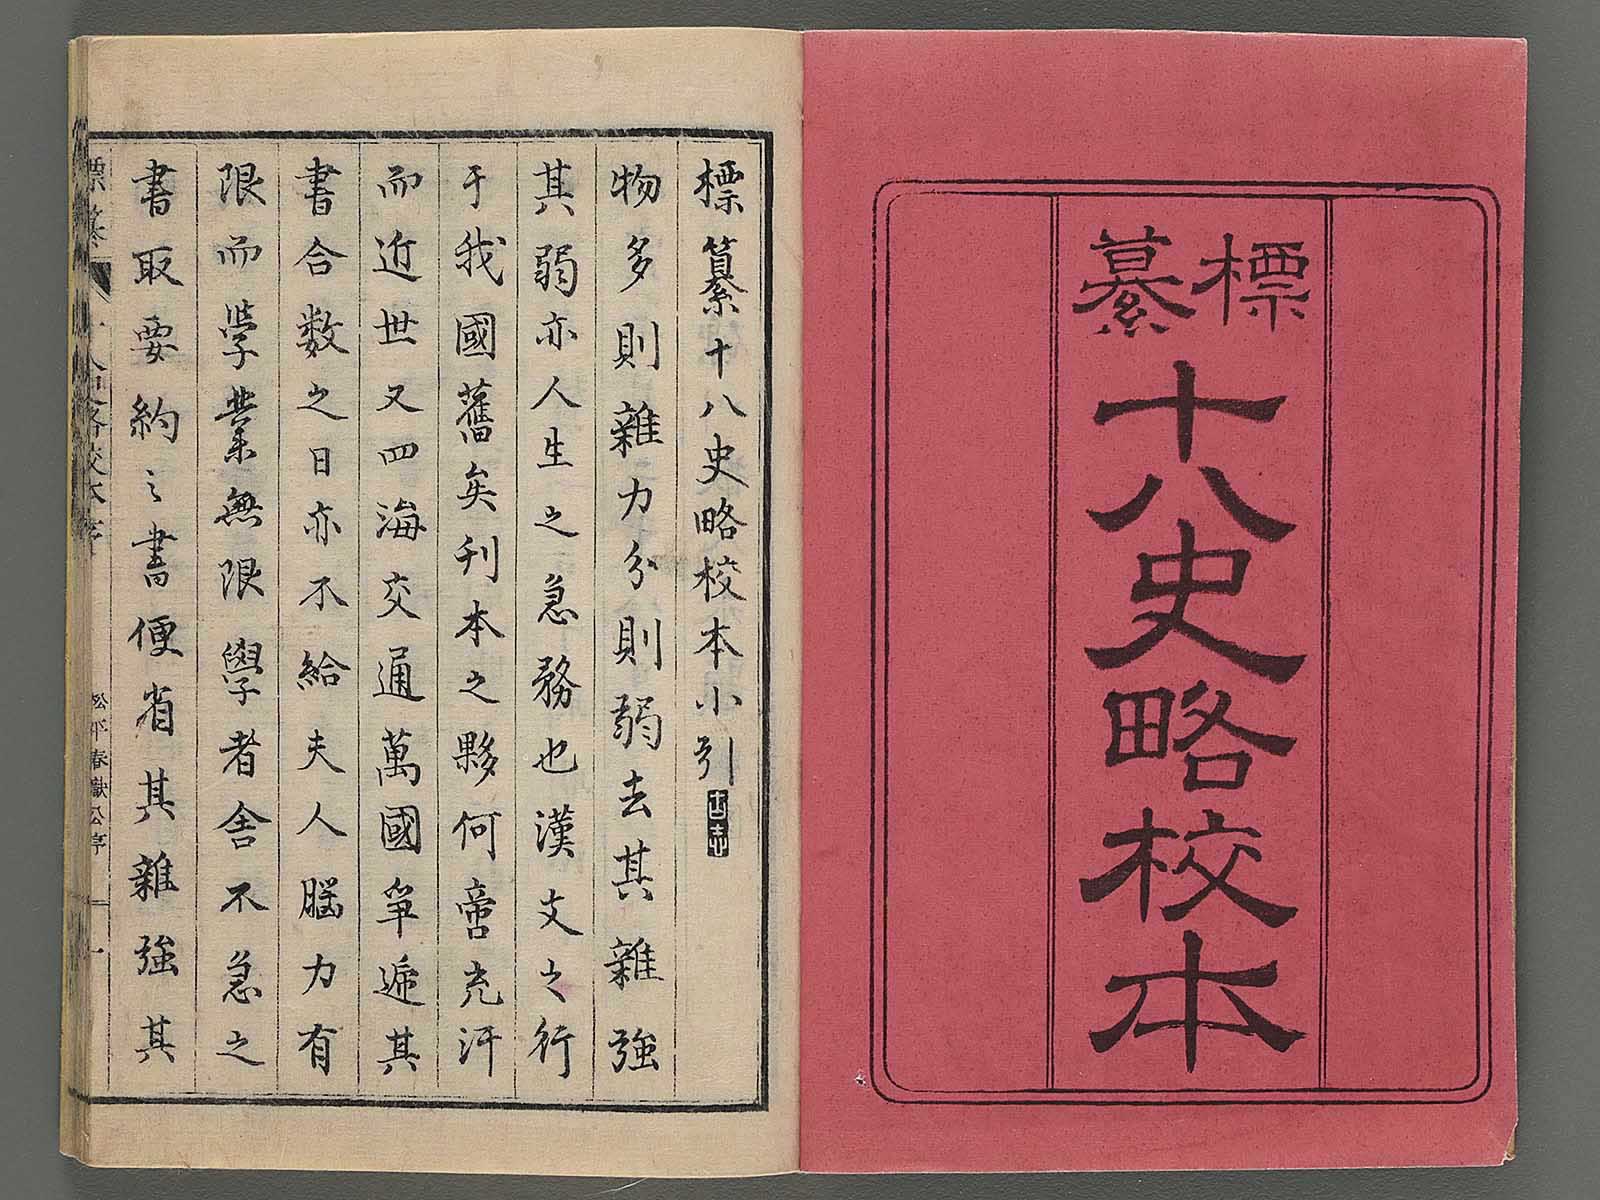 標纂
十八史略校本
標纂十八史略校本小引
物多則雜力分則弱去其雜強
其弱亦人生之急務也漢文之行
于我國舊矣刊本之夥何啻充汗
而近世又四海交通萬國爭遞其
書合數之日亦不給夫人腦力有
限而學業無限學者舍不急之
書取要約之書便省其雜強其
標纂 十八史略校本序 松平春嶽公序 一